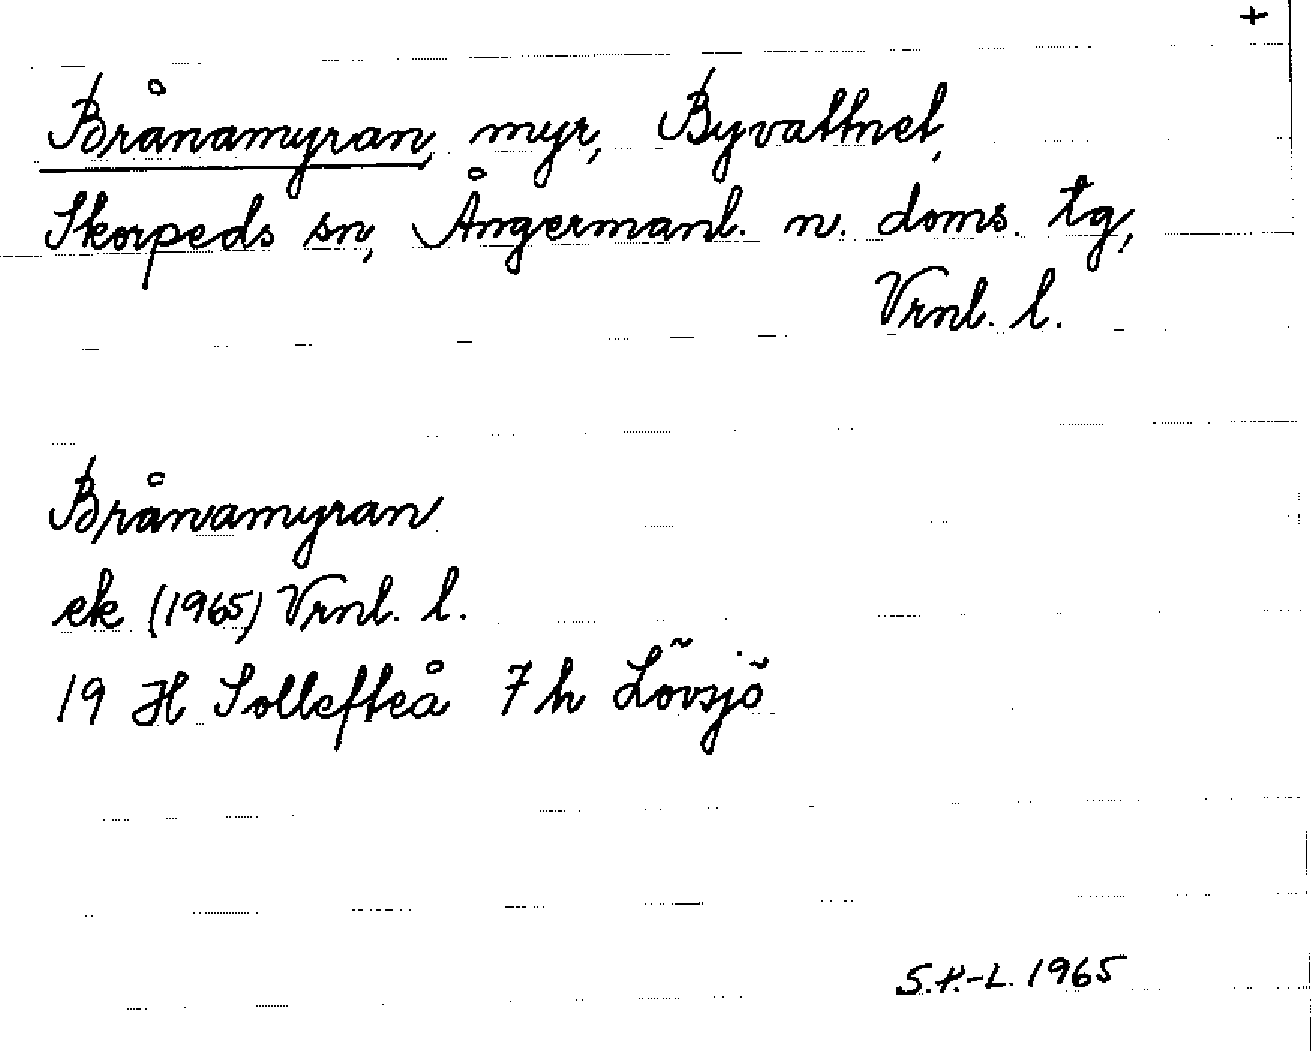 +
Brånamyran, myr, Byvattnet,
Skorpeds sn, Ångermanl. n. doms. tg,
Vrnl. l.
Brånamyran
ek (1965) Vrnl. l.
19 H Sollefteå 7 h Lövsjö
S.P.-L. 1965